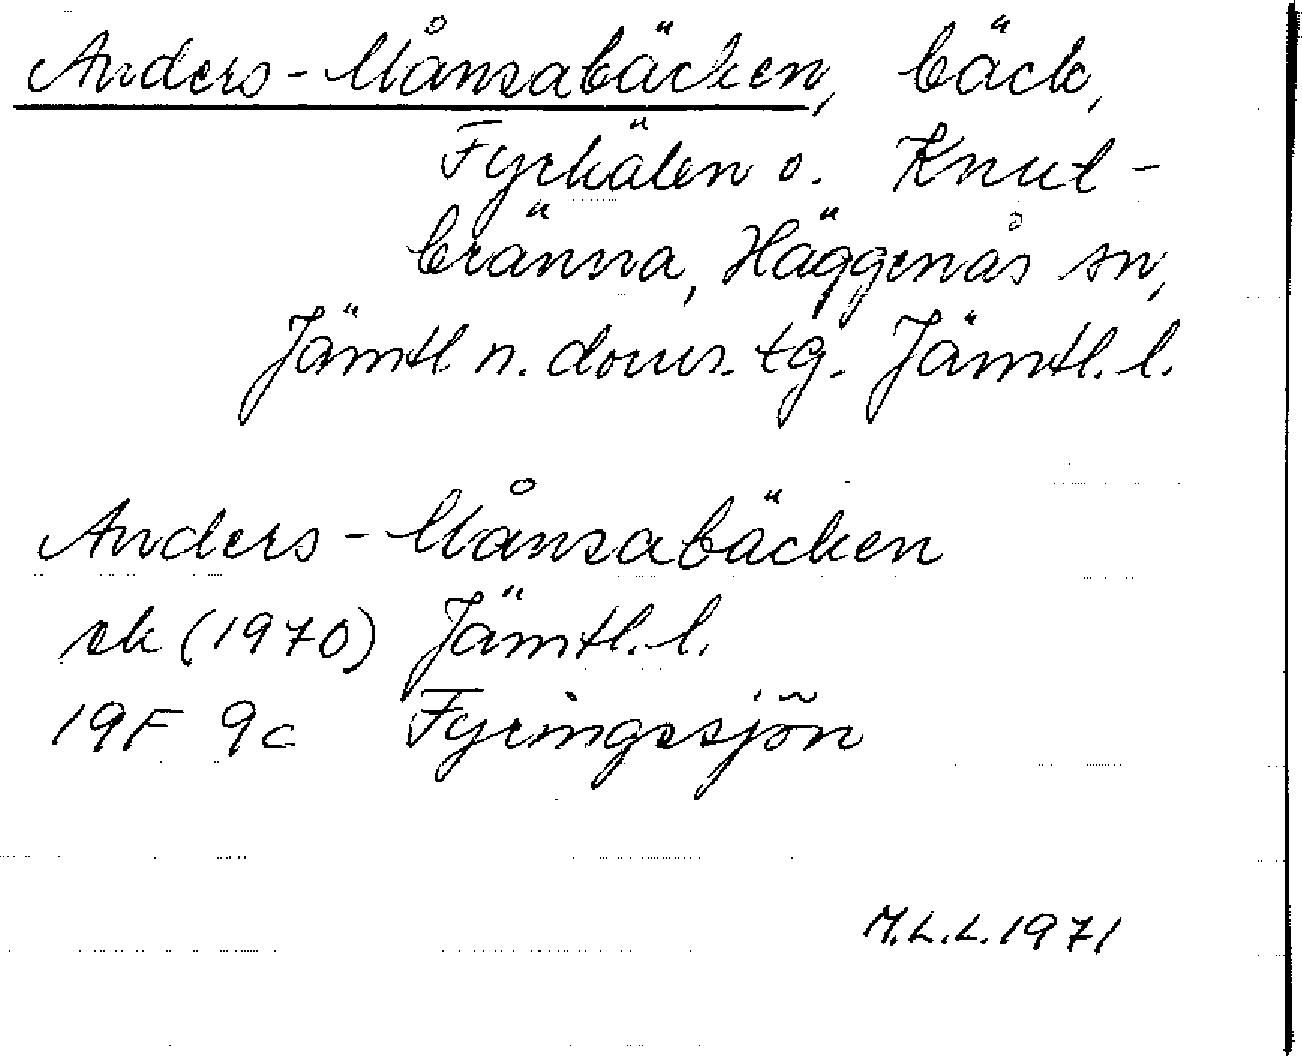 Anders-Månsabäcken, bäck,
Fyrkälen o. Knut-
bränna, Häggenås sn,
Jämtl n. doms. tg. Jämtl. l.
Anders-Månsabäcken
ek (1970) Jämtl. l.
19F 9c Fyringssjön
M.L.L. 1971